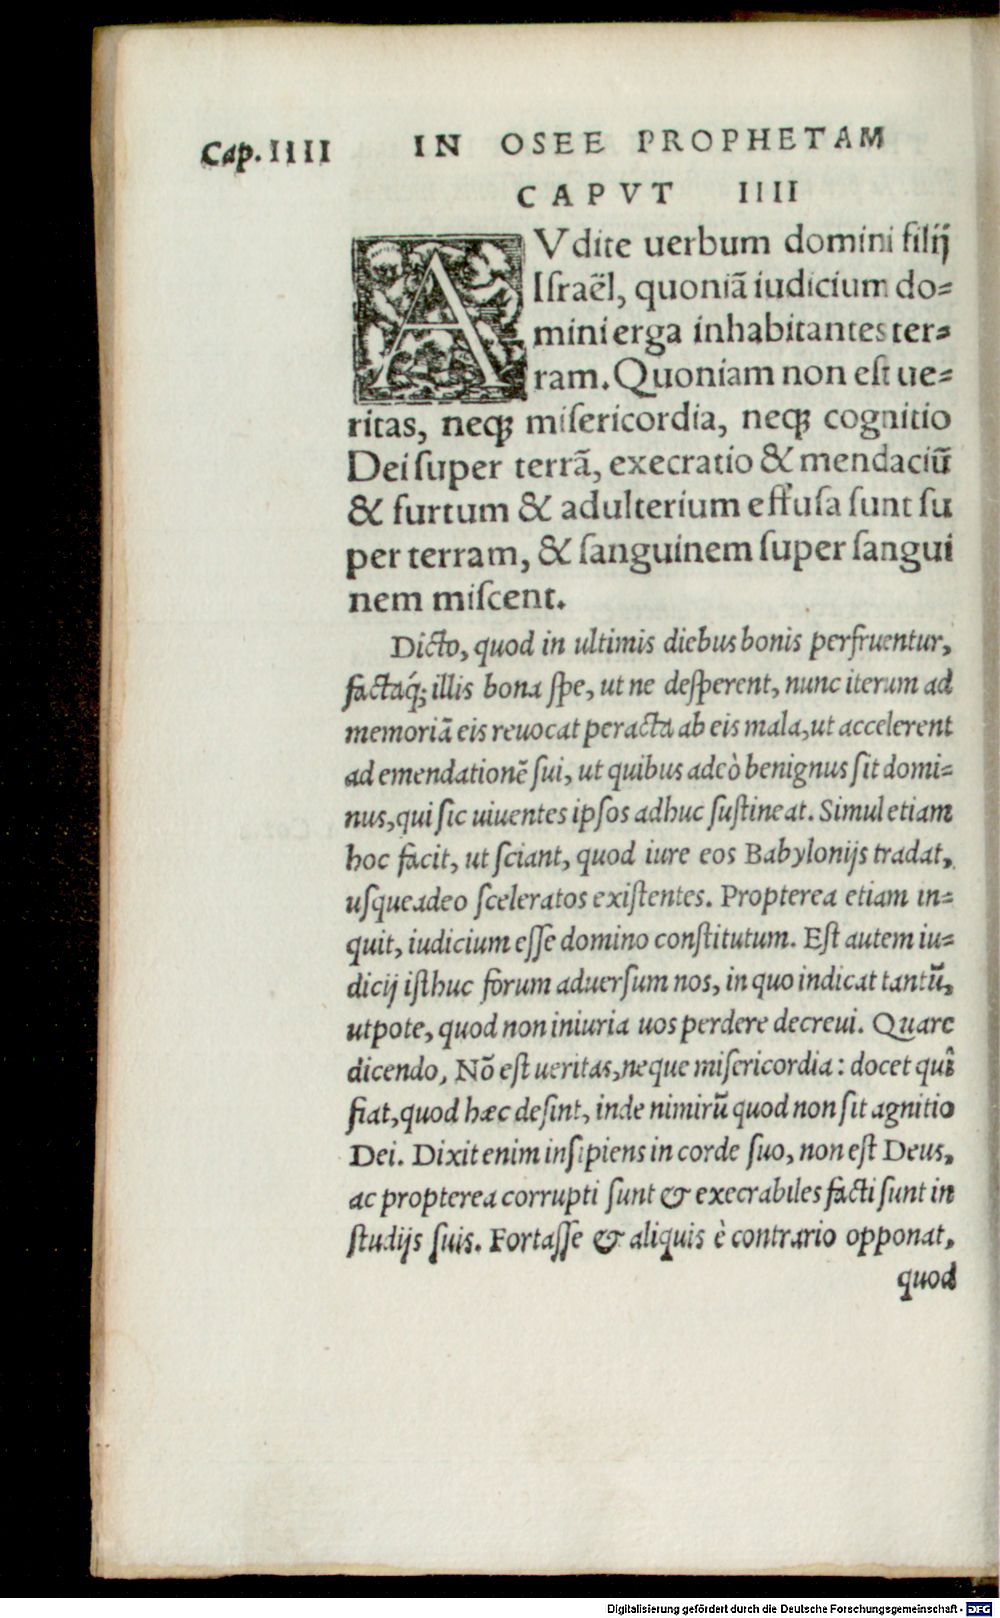 Cap. IIII
IN OSEE PROPHETAM
CAPVT IIII
AVdite uerbum domini filij
Israël, quoniã iudicium do=
mini erga inhabitantes ter=
ram. Quoniam non est ue=
ritas, neq; misericordia, neq; cognitio
Dei super terrã, execratio & mendaciũ
& furtum & adulterium effusa sunt su
per terram, & sanguinem super sangui
nem miscent.
Dicto, quod in ultimis diebus bonis perfruentur,
factaq́; illis bona spe, ut ne desperent, nunc iterum ad
memoriã eis reuocat peracta ab eis mala, ut accelerent
ad emendationẽ sui, ut quibus adeò benignus sit domi=
nus, qui sic uiuentes ipsos adhuc sustineat. Simul etiam
hoc facit, ut sciant, quod iure eos Babylonijs tradat,
usqueadeo sceleratos existentes. Propterea etiam in=
quit, iudicium esse domino constitutum. Est autem iu=
dicij isthuc forum aduersum nos, in quo indicat tantũ,
utpote, quod non iniuria uos perdere decreui. Quare
dicendo, Nõ est ueritas, neque misericordia: docet quî
fiat, quod hæc desint, inde nimirũ quod non sit agnitio
Dei. Dixit enim insipiens in corde suo, non est Deus,
ac propterea corrupti sunt & execrabiles facti sunt in
studijs suis. Fortasse & aliquis è contrario opponat,
quod
Digitalisierung gefördert durch die Deutsche Forschungsgemeinschaft - DFG